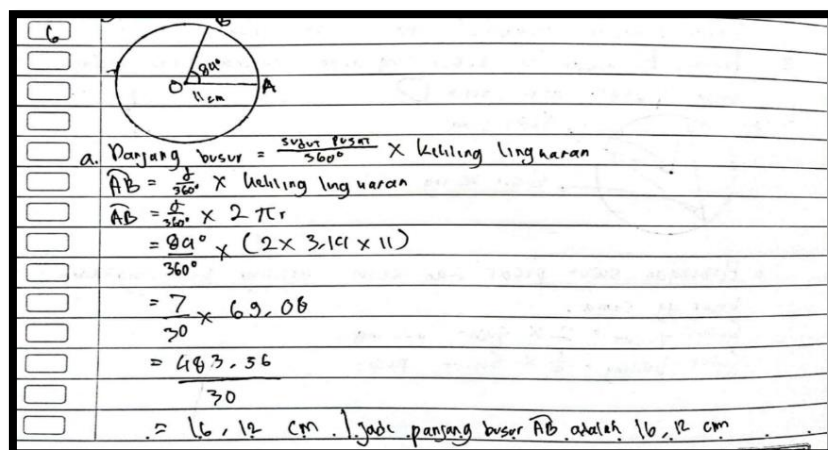 6
B
84°
O
A
11 cm
a. Panjang busur = sudut pusat / 360° × keliling lingkaran
AB = α / 360° × keliling lingkaran
AB = α / 360° × 2 πr
= 84° / 360° × (2 × 3,14 × 11)
= 7 / 30 × 69,08
= 483,56 / 30
= 16,12 cm. Jadi panjang busur AB adalah 16,12 cm